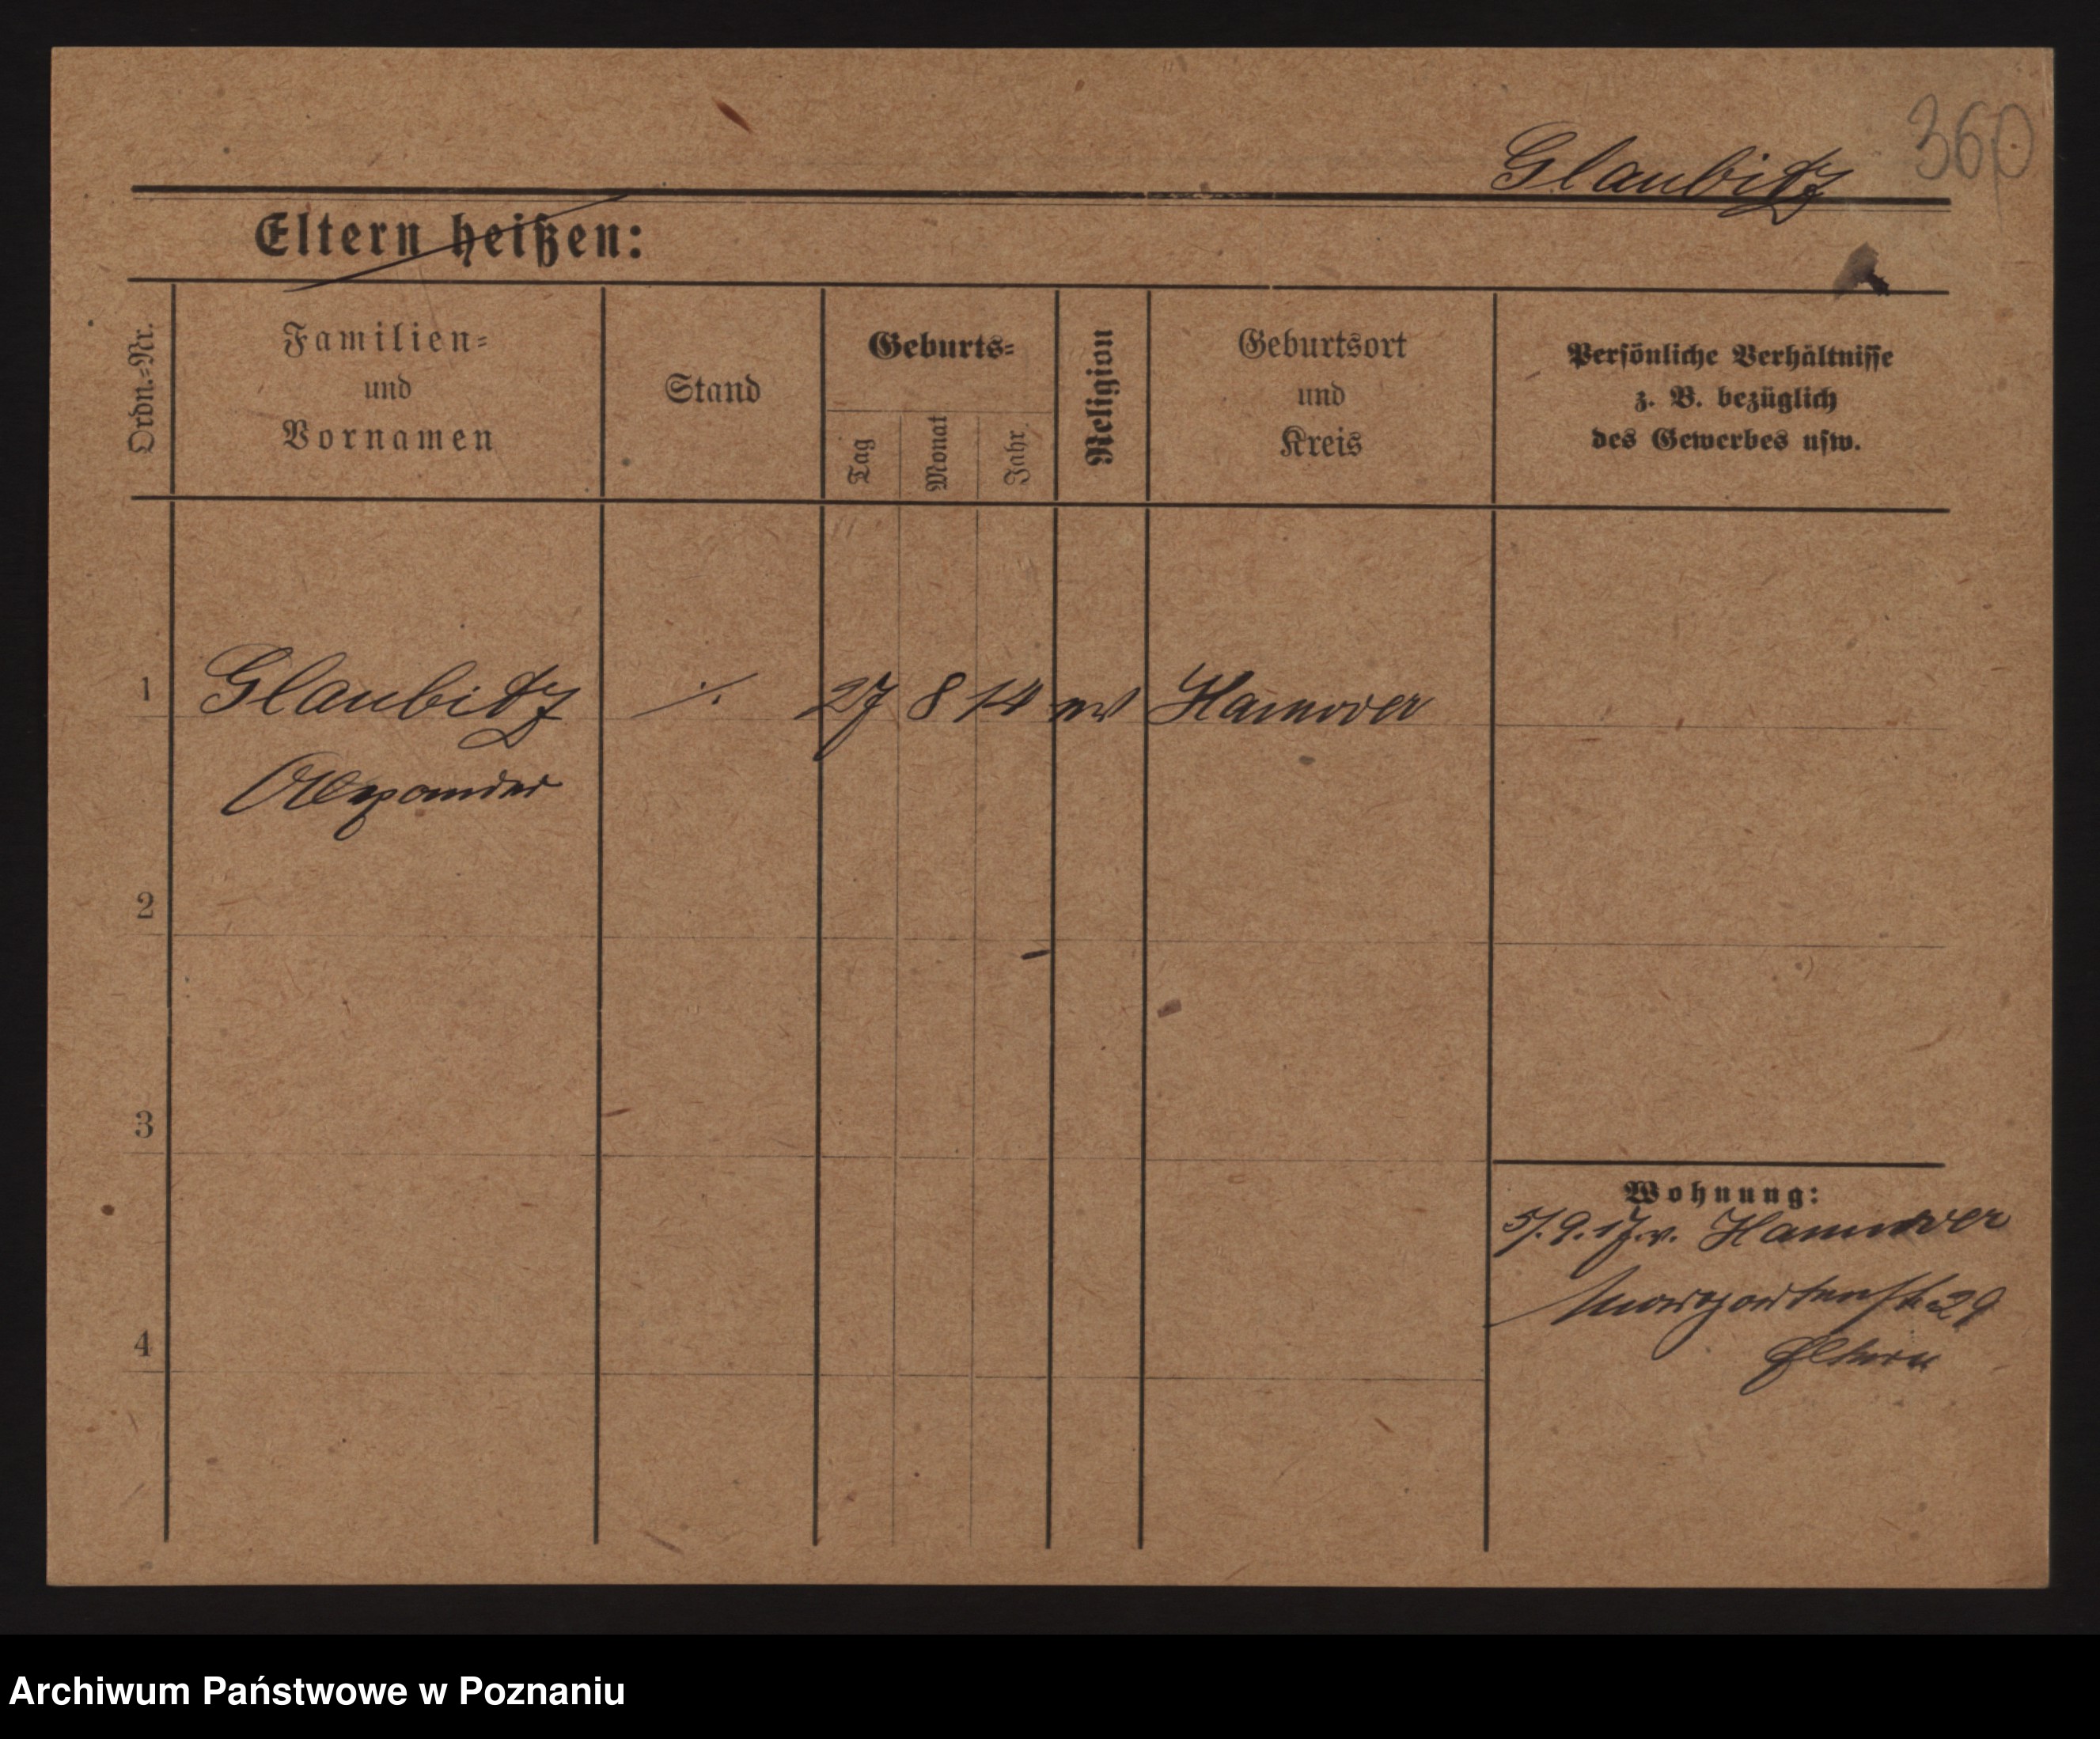 360
Glaubitz
Eltern heißen:
Ordn.=Nr.
Familien=
und
Vornamen
Stand
Geburts=
Tag
Monat
Jahr
Religion
Geburtsort
und
Kreis
Persönliche Verhältnisse
z. B. bezüglich
des Gewerbes usw.
1 Glaubitz ·/. 27 8 14 ev Hannover
Alexander
2
3
4
Wohnung:
5/.9.17 v. Hannover
29
Eltern
Archiwum Państwowe w Poznaniu